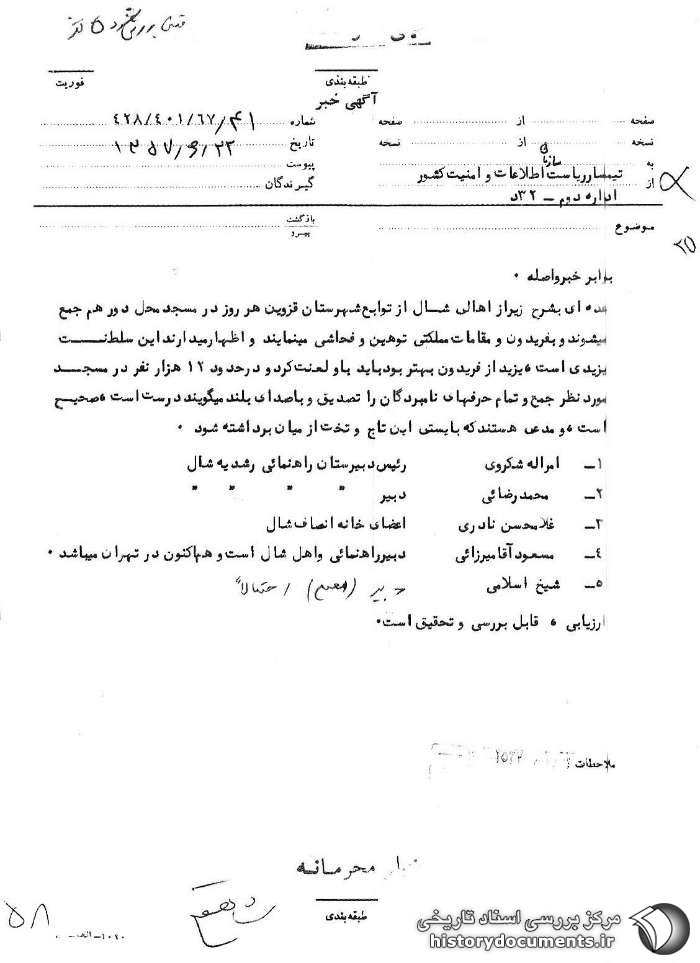 طبقه‌بندی
فوریت
آگهی خبر
صفحه از صفحه
شماره ۴۲۸/۴۰۱/۶۷/۴۱
نسخه از نسخه
تاریخ ۱۳۵۷/۶/۲۲
به
پیوست
تیمسار ریاست سازمان اطلاعات و امنیت کشور
از
گیرندگان
اداره دوم – ۳۲د
موضوع
بازگشت
پیرو
۲۵
برابر خبر واصله ۰
عده ای بشرح زیر از اهالی شال از توابع شهرستان قزوین هر روز در مسجد محل دور هم جمع
میشوند و بفریدون و مقامات مملکتی توهین و فحاشی مینمایند و اظهار میدارند این سلطنت
یزیدی است ، یزید از فریدون بهتر بود باید باو لعنت کرد و در حدود ۱۲ هزار نفر در مسجد
مورد نظر جمع و تمام حرفهای نامبردگان را تصدیق و با صدای بلند میگویند درست است ، صحیح
است ، و مدعی هستند که بایستی این تاج و تخت از میان برداشته شود ۰
۱ــ امراله شکروی رئیس دبیرستان راهنمائی رشدیه شال
۲ــ محمد رضائی دبیر " " " "
۳ــ غلامحسن نادری اعضای خانه انصاف شال
۴ــ مسعود آقا میرزائی دبیر راهنمائی واهل شال است و هم اکنون در تهران میباشد ۰
۵ــ شیخ اسلامی دبیر (معمم) احتمالاً
ارزیابی ، قابل بررسی و تحقیق است۰
ملاحظات :
محرمانه
طبقه‌بندی
۵۸
مرکز بررسی اسناد تاریخی
historydocuments.ir